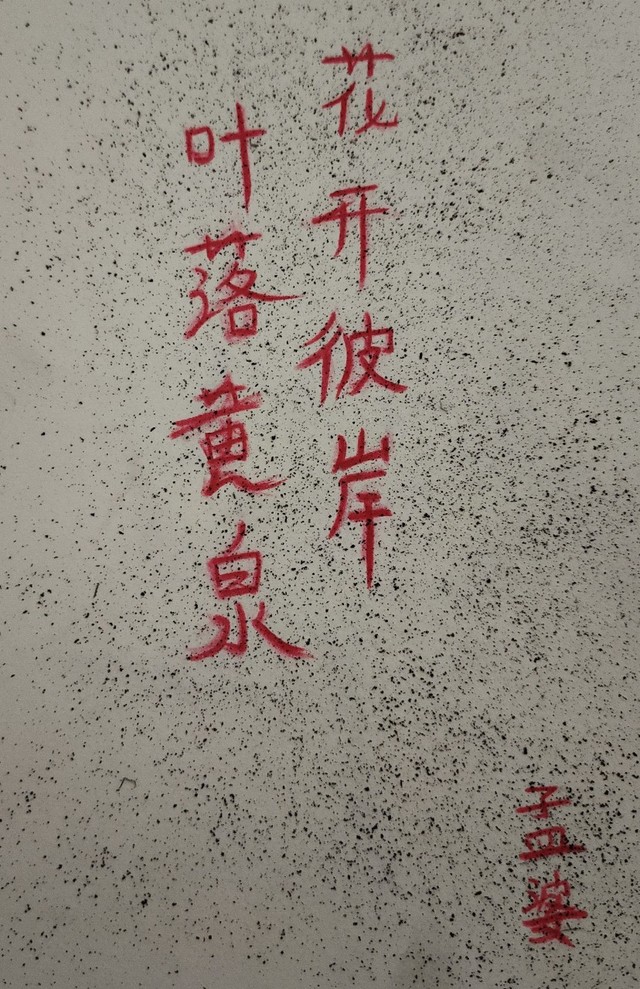 花开彼岸
叶落黄泉
孟婆